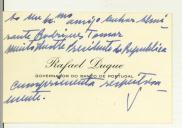 Ao seu Exmo amigo Senhor Almi-
rante Rodrigues Tomaz
Presidente da Republica
Rafael Duque
GOVERNADOR DO BANCO DE PORTUGAL
cumprimenta respeitosa-
mente.